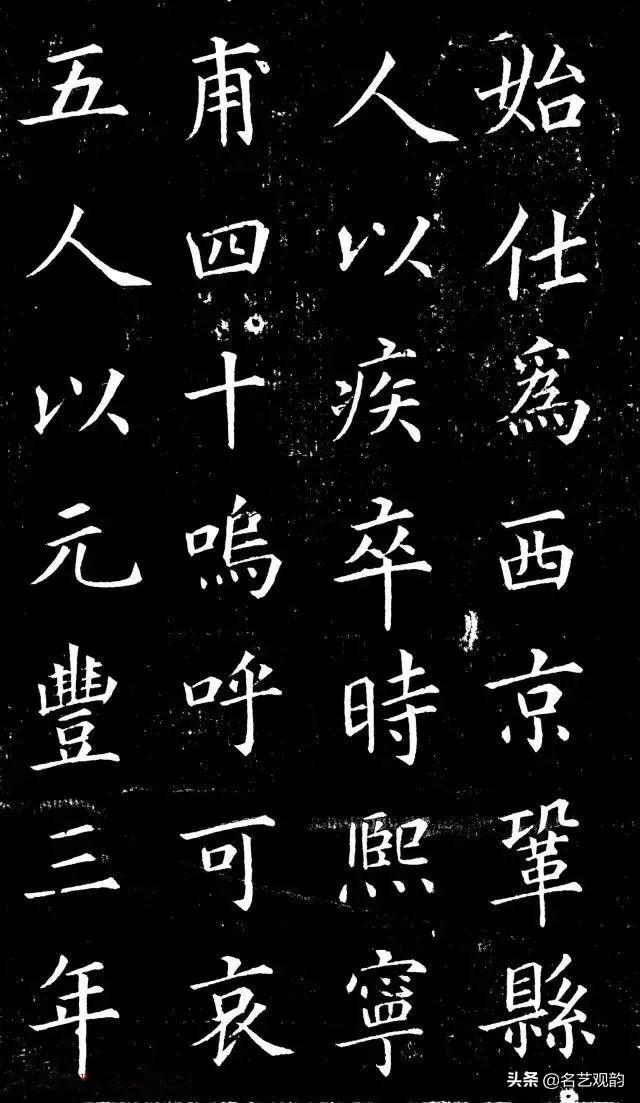 始仕爲西京鞏縣
人以疾卒時熙寧
甫四十嗚呼可哀
五人以元豐三年
头条@名艺观韵